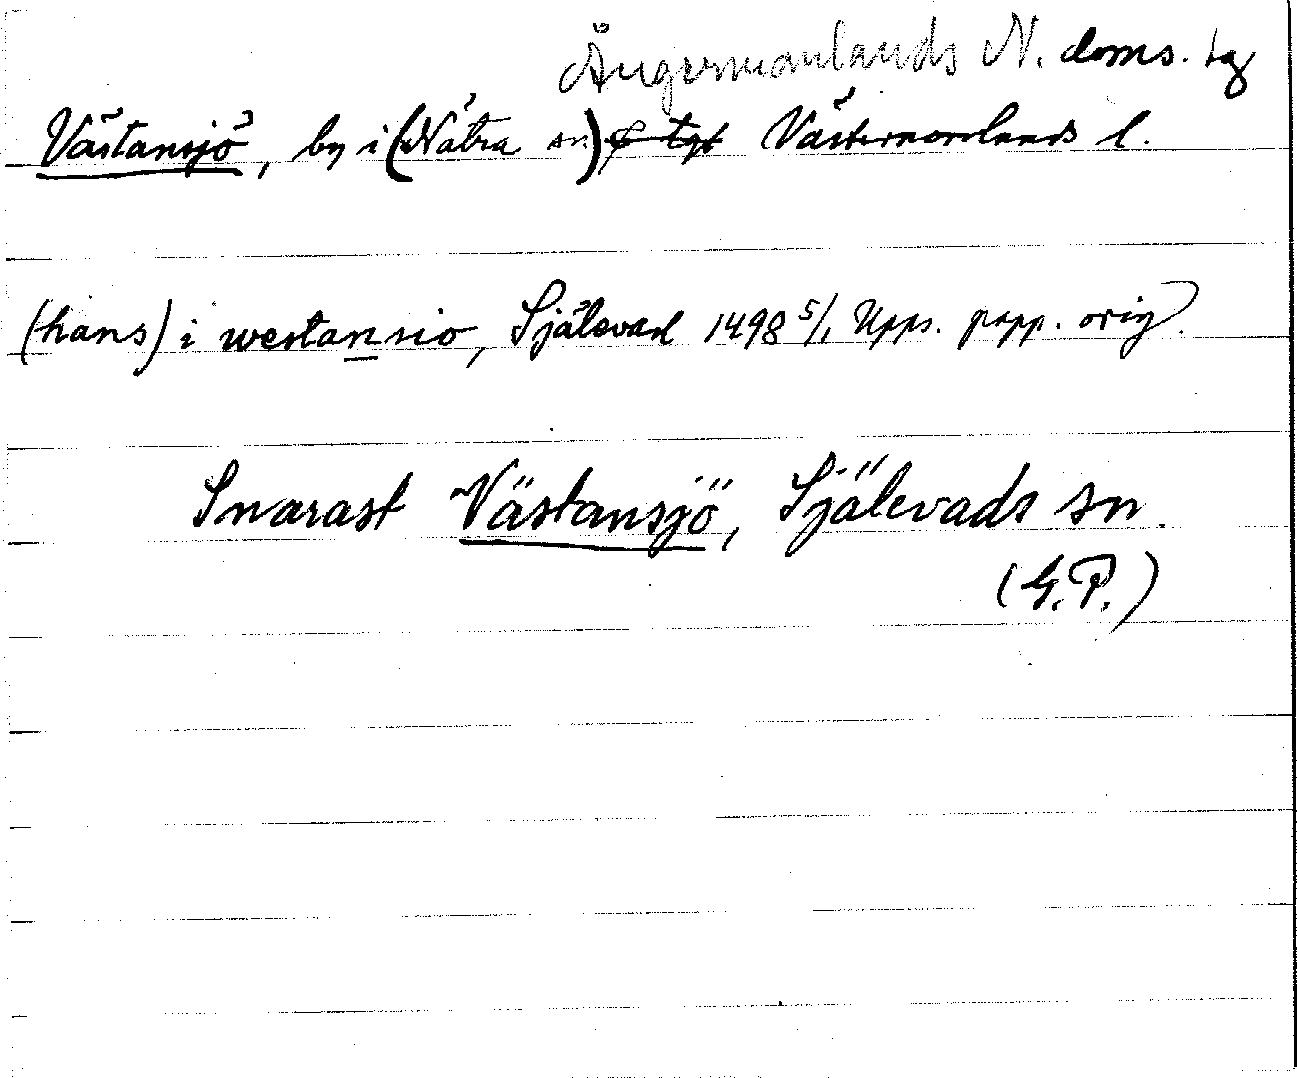 Ångermanlands N. doms. tg
Västansjö, by i (Nätra sn) tgt Västernorrlands l.
(hans) i westansio, Själevad 1498 5/1 Upps. papp. orig.
Snarast Västansjö, Själevads sn.
(G.P.)